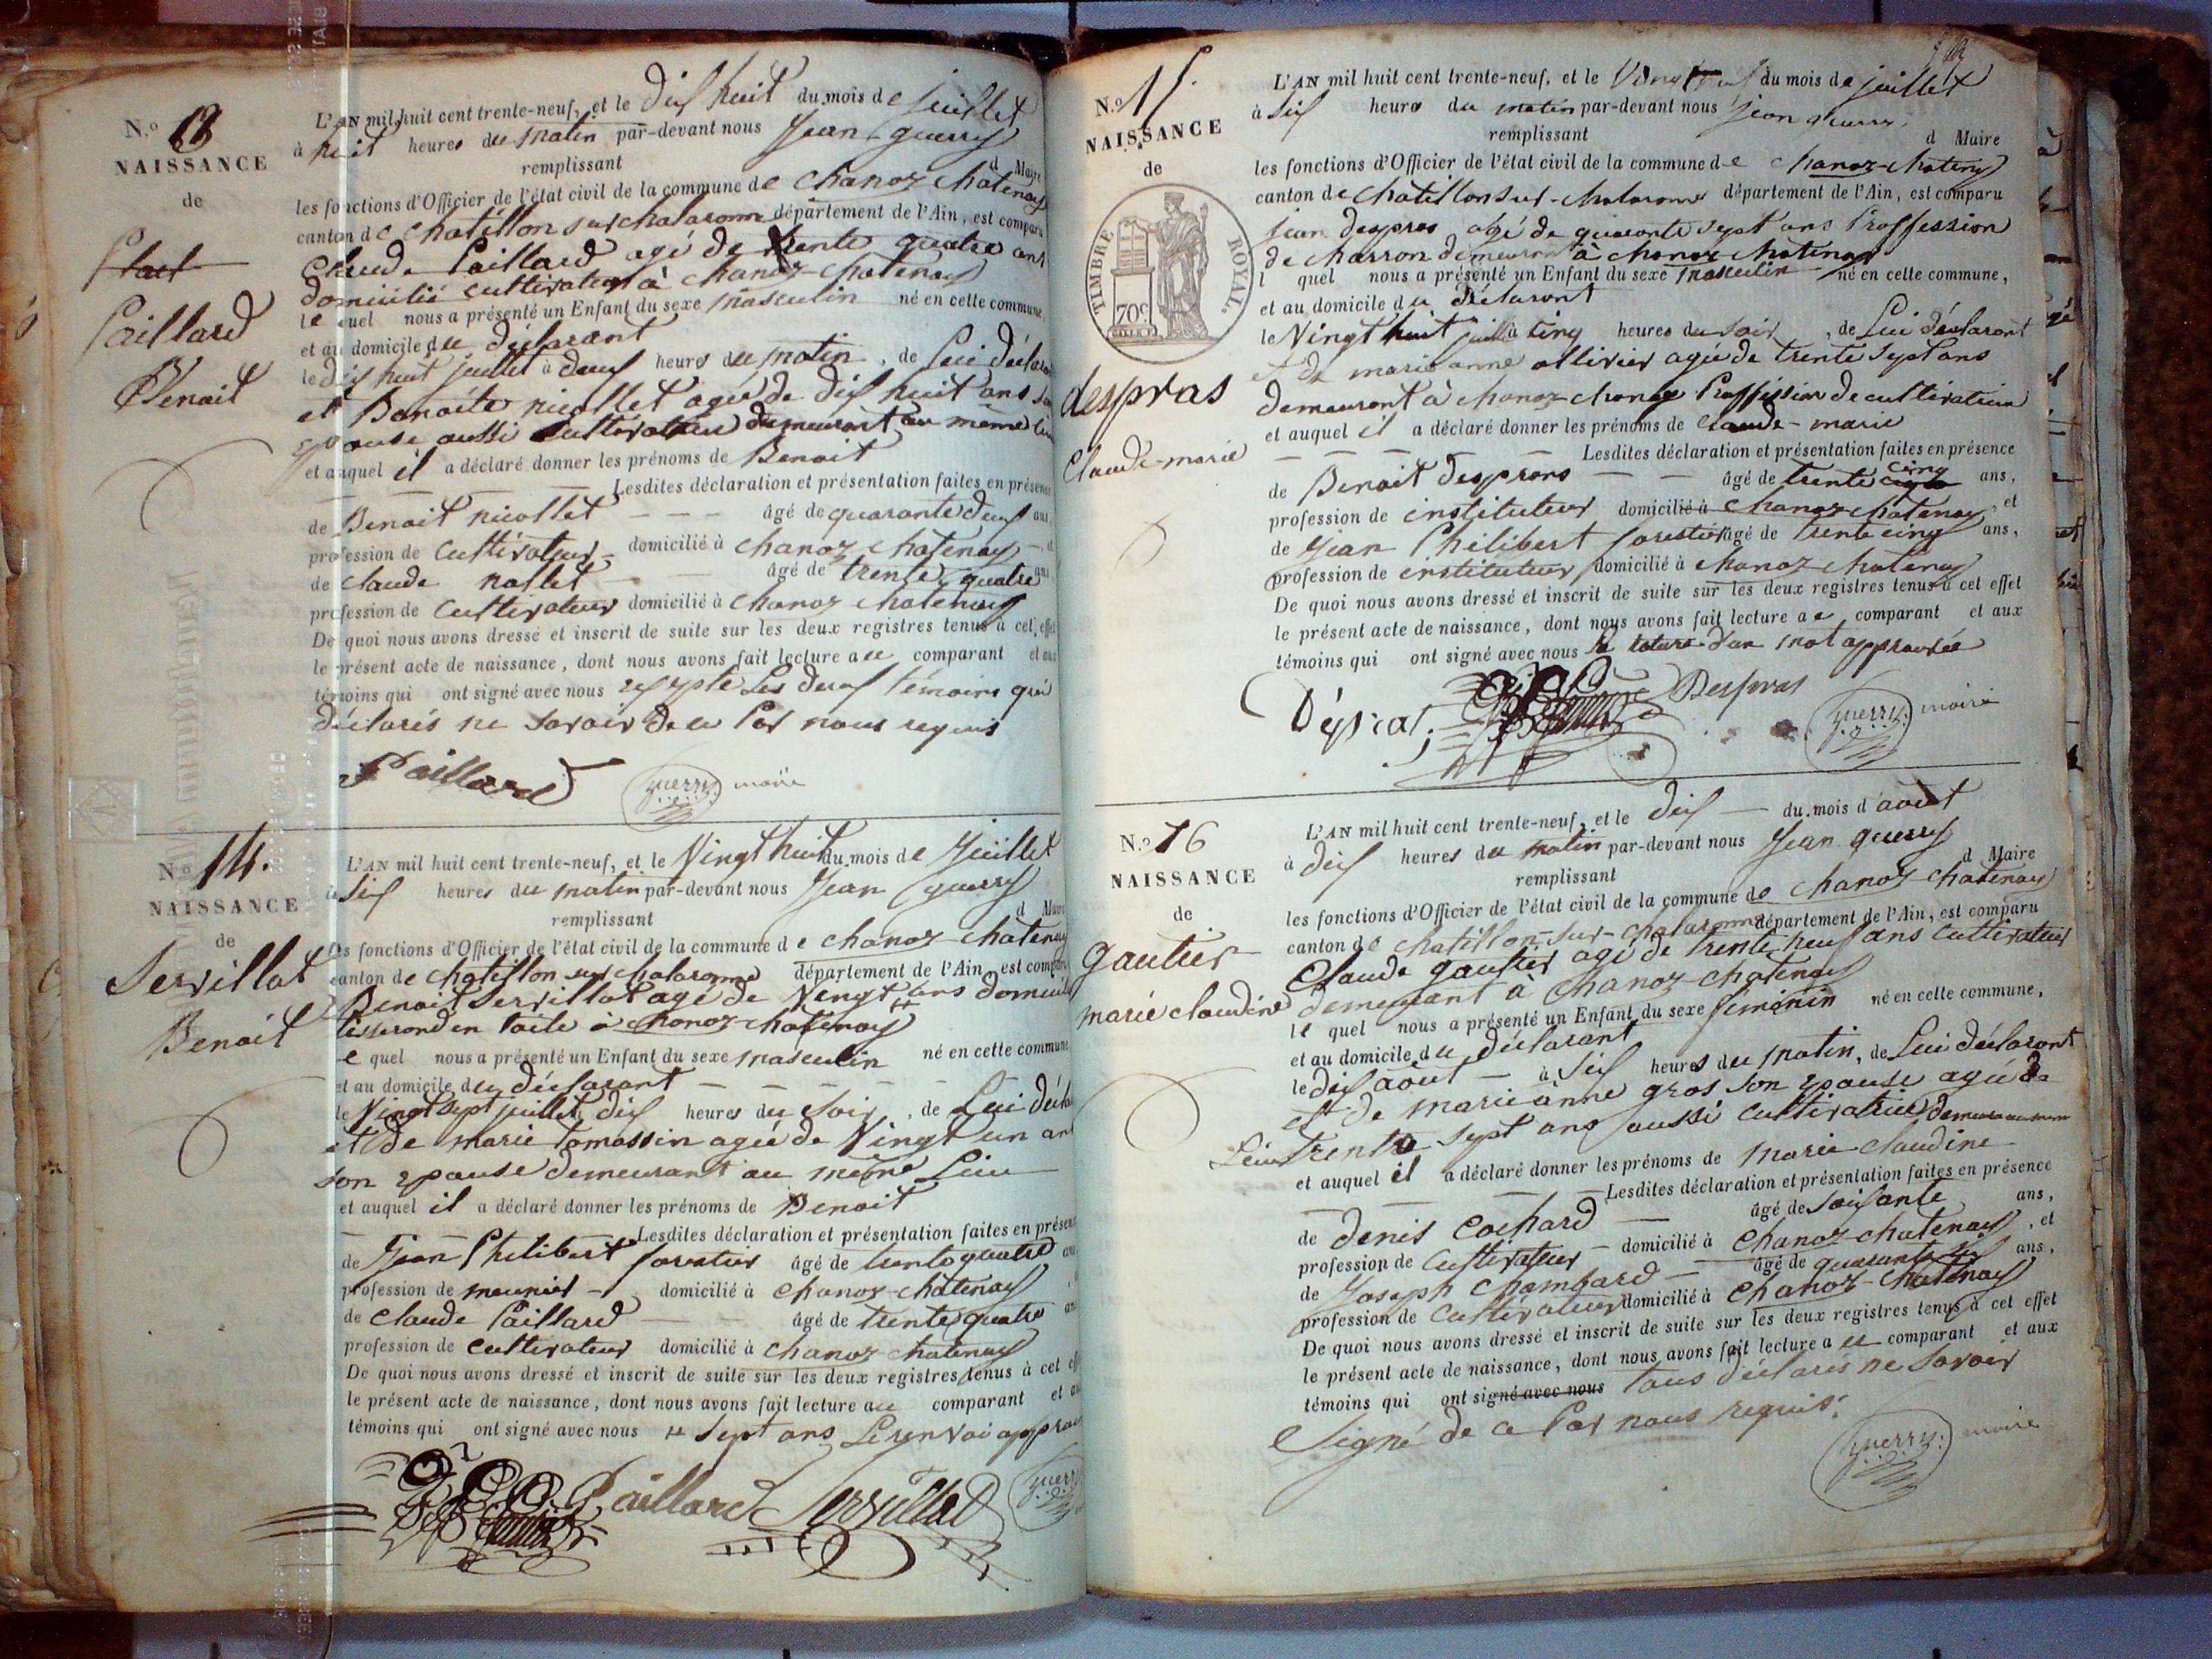 N.º 13
NAISSANCE
de
Paillard
Benoit
L'AN mil huit cent trente-neuf, et le dix huit du mois de juillet
à huit heures du matin par-devant nous Jean guerry
remplissant d Maire
les fonctions d'Officier de l'état civil de la commune de chanoz chatenay
canton de chatillon sur chalaronne département de l'Ain, est comparu
Claude Paillard agé de trente quatre ans
domicilié cultivateur à chanoz chatenay
le quel nous a présenté un Enfant du sexe masculin né en cette commune,
et au domicile du déclarant
le dix huit juillet à deux heures du matin, de lui déclarant
et Benoite nicollet agée de dix huit ans son
epouse aussi cultivatrice demeurant au même lieu
et auquel il a déclaré donner les prénoms de Benoit
Lesdites déclaration et présentation faites en présence
de Benoit nicollet âgé de quarante deux ans,
profession de cultivateur domicilié à chanoz chatenay
de claude nallet âgé de trente quatre ans
profession de cultivateur domicilié à chanoz chatenay
De quoi nous avons dressé et inscrit de suite sur les deux registres tenus à cet effet
le présent acte de naissance, dont nous avons fait lecture au comparant et aux
témoins qui ont signé avec nous excepte les deux témoins qui
déclarés ne savoir de ce Par nous requis
Paillard guerry maire
N.º 14.
NAISSANCE
de
Servillat
Benoit
L'AN mil huit cent trente-neuf, et le Vingt huit du mois de Juillet
à six heures du matin par-devant nous Jean guerry
remplissant d Maire
les fonctions d'Officier de l'état civil de la commune de chanoz chatenay
canton de chatillon sur chalaronne département de l'Ain, est comparu
Benoit Servillat agé de Vingt ans domicilié
tisserand en toile à chanoz chatenay
e quel nous a présenté un Enfant du sexe masculin né en cette commune
et au domicile du déclarant
le Vingt sept juillet dix heures du soir, de Lui décla
et de marie tomassin agée de Vingt un ans
son epouse demeurant au même Lieu
et auquel il a déclaré donner les prénoms de Benoit
Lesdites déclaration et présentation faites en présence
de Jean Philibert forestier âgé de trente quatre ans
profession de meunier domicilié à chanoz chatenay
de claude Paillard âgé de trente quatre ans
profession de cultivateur domicilié à chanoz chatenay
De quoi nous avons dressé et inscrit de suite sur les deux registres tenus à cet effet
le présent acte de naissance, dont nous avons fait lecture au comparant et aux
témoins qui ont signé avec nous sept ans Le renvoi approuvé
Paillard Servillat guerry
N.º 15.
NAISSANCE
de
TIMBRE ROYAL.
70c
despras
Claude-marie
L'AN mil huit cent trente-neuf, et le Vingt neuf du mois de juillet
à six heure du matin par-devant nous jean guerry
remplissant d Maire
les fonctions d'Officier de l'état civil de la commune de chanoz-chateny
canton de chatillon sur-chalaronne département de l'Ain, est comparu
jean despras agé de quaronte sept ans Proffession
de charron demeurant à chanoz chatenay
l quel nous a présenté un Enfant du sexe masculin né en cette commune,
et au domicile du déclaront
le Vingt huit juillet à cinq heures du soir, de Lui déclaront
et de marie anne ollivier agée de trente sept ans
demeuront à chanoz-chanay Proffission de cultivatrice
et auquel il a déclaré donner les prénoms de claude-marie
Lesdites déclaration et présentation faites en présence
de Benoit despras âgé de trente cinq ans,
profession de instituteur domicilié à chanoz chatenay, et
de jean Philibert forestier âgé de trente cinq ans,
profession de instituteur domicilié à chanoz chatenay
De quoi nous avons dressé et inscrit de suite sur les deux registres tenus à cet effet
le présent acte de naissance, dont nous avons fait lecture a e comparant et aux
témoins qui ont signé avec nous la rature d'un mot approuvée
Déspras Despras guerry maire
N.º 16
NAISSANCE
de
gautier
marie claudine
L'AN mil huit cent trente-neuf, et le dix du mois d'août
à dix heures du matin par-devant nous Jean guerry
remplissant d Maire
les fonctions d'Officier de l'état civil de la commune de chanoz-chatenay
canton de chatillon-sur-chalaronne département de l'Ain, est comparu
Claude gautier agé de trente neuf ans cultivateur
demeurant à chanoz-chatenay
le quel nous a présenté un Enfant du sexe féminin né en cette commune,
et au domicile du déclarant
le dix août à six heures du matin, de Lui déclaront
et de marie anne gros son epouse agée de
trente sept ans aussi cultivatrice demeurant au meme
Lieu
et auquel il a déclaré donner les prénoms de marie claudine
Lesdites déclaration et présentation faites en présence
de denis cochard âgé de soixante ans,
profession de cultivateur domicilié à chanoz-chatenay, et
de Joseph chambard âgé de quarante six ans,
profession de cultivateur domicilié à chanoz-chatenay
De quoi nous avons dressé et inscrit de suite sur les deux registres tenus à cet effet
le présent acte de naissance, dont nous avons fait lecture a u comparant et aux
témoins qui ont signé avec nous tous déclarés ne savoir
Signé de ce Par nous requis.
guerry maire